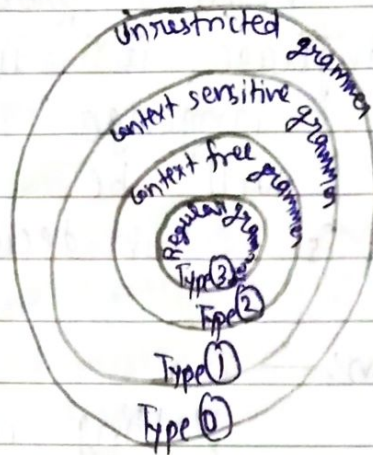 Unrestricted grammer
Context sensitive grammer
Context free grammer
Regular grammer
Type 3
Type 2
Type 1
Type 0